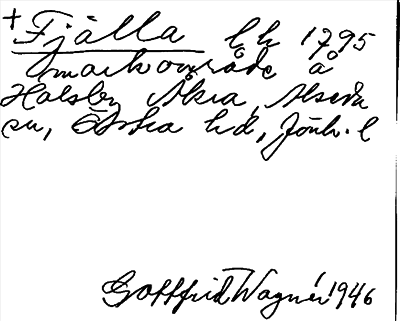 +Fjälla lh 1795
markområde å
Halsby Åkra, Alseda
sn, Östra hd, Jönk. l
Gottfrid Wagnér 1946